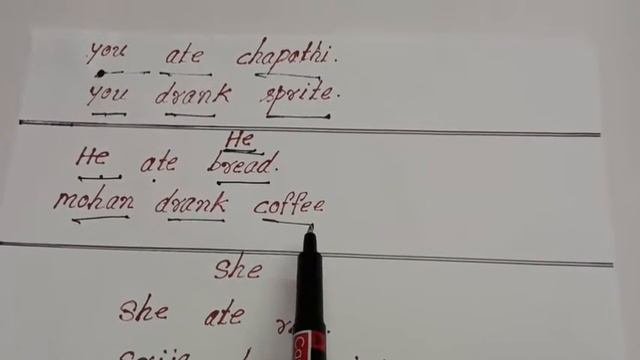 you ate chapathi.
you drank sprite.
He
He ate bread.
mohan drank coffee
she
she ate